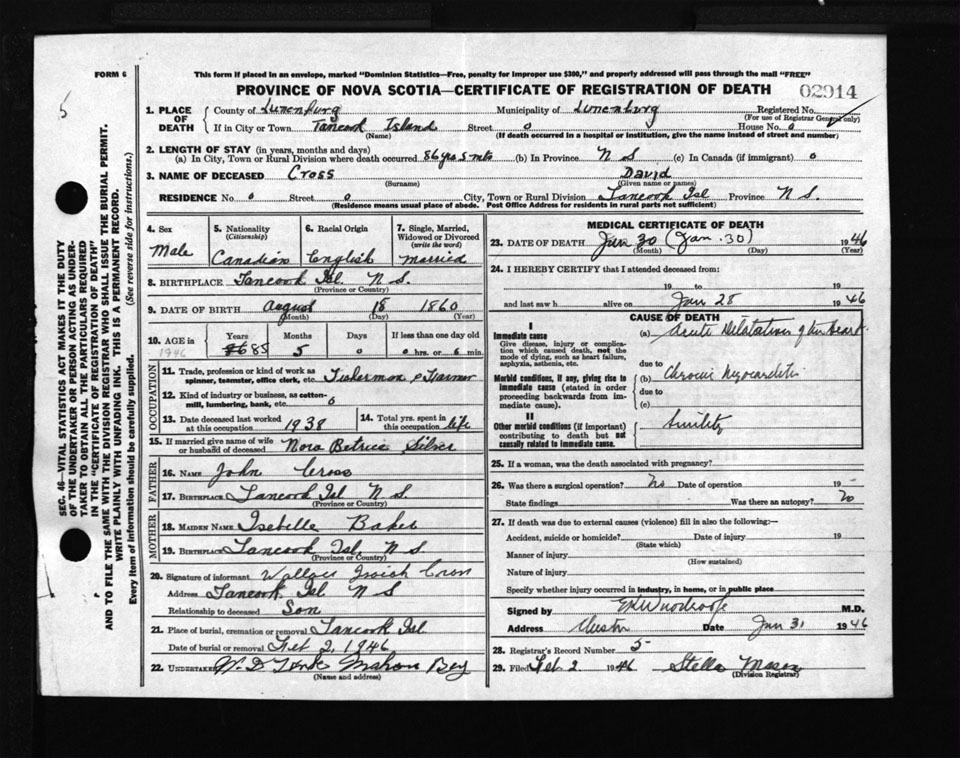 FORM 6
This form if placed in an envelope, marked "Dominion Statistics—Free, penalty for improper use $300," and properly addressed will pass through the mail "FREE"
PROVINCE OF NOVA SCOTIA—CERTIFICATE OF REGISTRATION OF DEATH
02914
5
1. PLACE OF DEATH
County of Lunenburg Municipality of Lunenburg Registered No.
(For use of Registrar General only)
If in City or Town Tancook Island Street 0 House No. 0
(Name) (If death occurred in a hospital or institution, give the name instead of street and number)
2. LENGTH OF STAY (in years, months and days)
(a) In City, Town or Rural Division where death occurred 86 yrs 5 mts (b) In Province N S (c) In Canada (if immigrant) 0
3. NAME OF DECEASED Cross David
(Surname) (Given name or names)
RESIDENCE No. 0 Street 0 City, Town or Rural Division Tancook Isl Province N S.
(Residence means usual place of abode. Post Office Address for residents in rural parts not sufficient)
4. Sex Male
5. Nationality (Citizenship) Canadian
6. Racial Origin English
7. Single, Married, Widowed or Divorced (write the word) Married
8. BIRTHPLACE Tancook Isl. N S.
(Province or Country)
9. DATE OF BIRTH August 18 1860
(Month) (Day) (Year)
10. AGE in Years Months Days If less than one day old
1946 85 5 0 0 hrs. or 6 min.
OCCUPATION
11. Trade, profession or kind of work as spinner, teamster, office clerk, etc. Fisherman & Farmer
12. Kind of industry or business, as cotton-mill, lumbering, bank, etc. 0
13. Date deceased last worked at this occupation 1938
14. Total yrs. spent in this occupation life
15. If married give name of wife or husband of deceased Nora Betrice Silver
FATHER
16. NAME John Cross
17. BIRTHPLACE Tancook Isl N S.
(Province or Country)
MOTHER
18. MAIDEN NAME Isebelle Baker
19. BIRTHPLACE Tancook Isl. N S.
(Province or Country)
20. Signature of informant Wallace Isaiah Cross
Address Tancook Isl N S
Relationship to deceased Son
21. Place of burial, cremation or removal Tancook Isl
Date of burial or removal Feb 2, 1946
22. UNDERTAKER W. D. Mahone Bay
(Name and address)
MEDICAL CERTIFICATE OF DEATH
23. DATE OF DEATH Jan 30 (Jan. 30) 1946
(Month) (Day) (Year)
24. I HEREBY CERTIFY that I attended deceased from:
19 to 19
and last saw h alive on Jan 28 1946
CAUSE OF DEATH
I
Immediate cause
Give disease, injury or complication which caused death, not the mode of dying, such as heart failure, asphyxia, asthenia, etc.
(a) Acute Dilatation of heart
due to
Morbid conditions, if any, giving rise to immediate cause (stated in order proceeding backwards from immediate cause).
(b) Chronic Myocarditis
due to
(c)
II
Other morbid conditions (if important) contributing to death but not causally related to immediate cause.
Senility
25. If a woman, was the death associated with pregnancy?
26. Was there a surgical operation? No Date of operation 19
State findings Was there an autopsy? No
27. If death was due to external causes (violence) fill in also the following:—
Accident, suicide or homicide? Date of injury 19
(State which)
Manner of injury
(How sustained)
Nature of injury
Specify whether injury occurred in industry, in home, or in public place
Signed by M.D.
Address Chester Date Jan 31 1946
28. Registrar's Record Number 5
29. Filed Feb 2 1946 Stella Mason
(Division Registrar)
SEC. 46—VITAL STATISTICS ACT MAKES IT THE DUTY
OF THE UNDERTAKER OR PERSON ACTING AS UNDER-
TAKER TO OBTAIN ALL THE PARTICULARS REQUIRED
IN THE "CERTIFICATE OF REGISTRATION OF DEATH"
AND TO FILE THE SAME WITH THE DIVISION REGISTRAR WHO SHALL ISSUE THE BURIAL PERMIT.
WRITE PLAINLY WITH UNFADING INK. THIS IS A PERMANENT RECORD.
Every item of information should be carefully supplied. (See reverse side for instructions.)